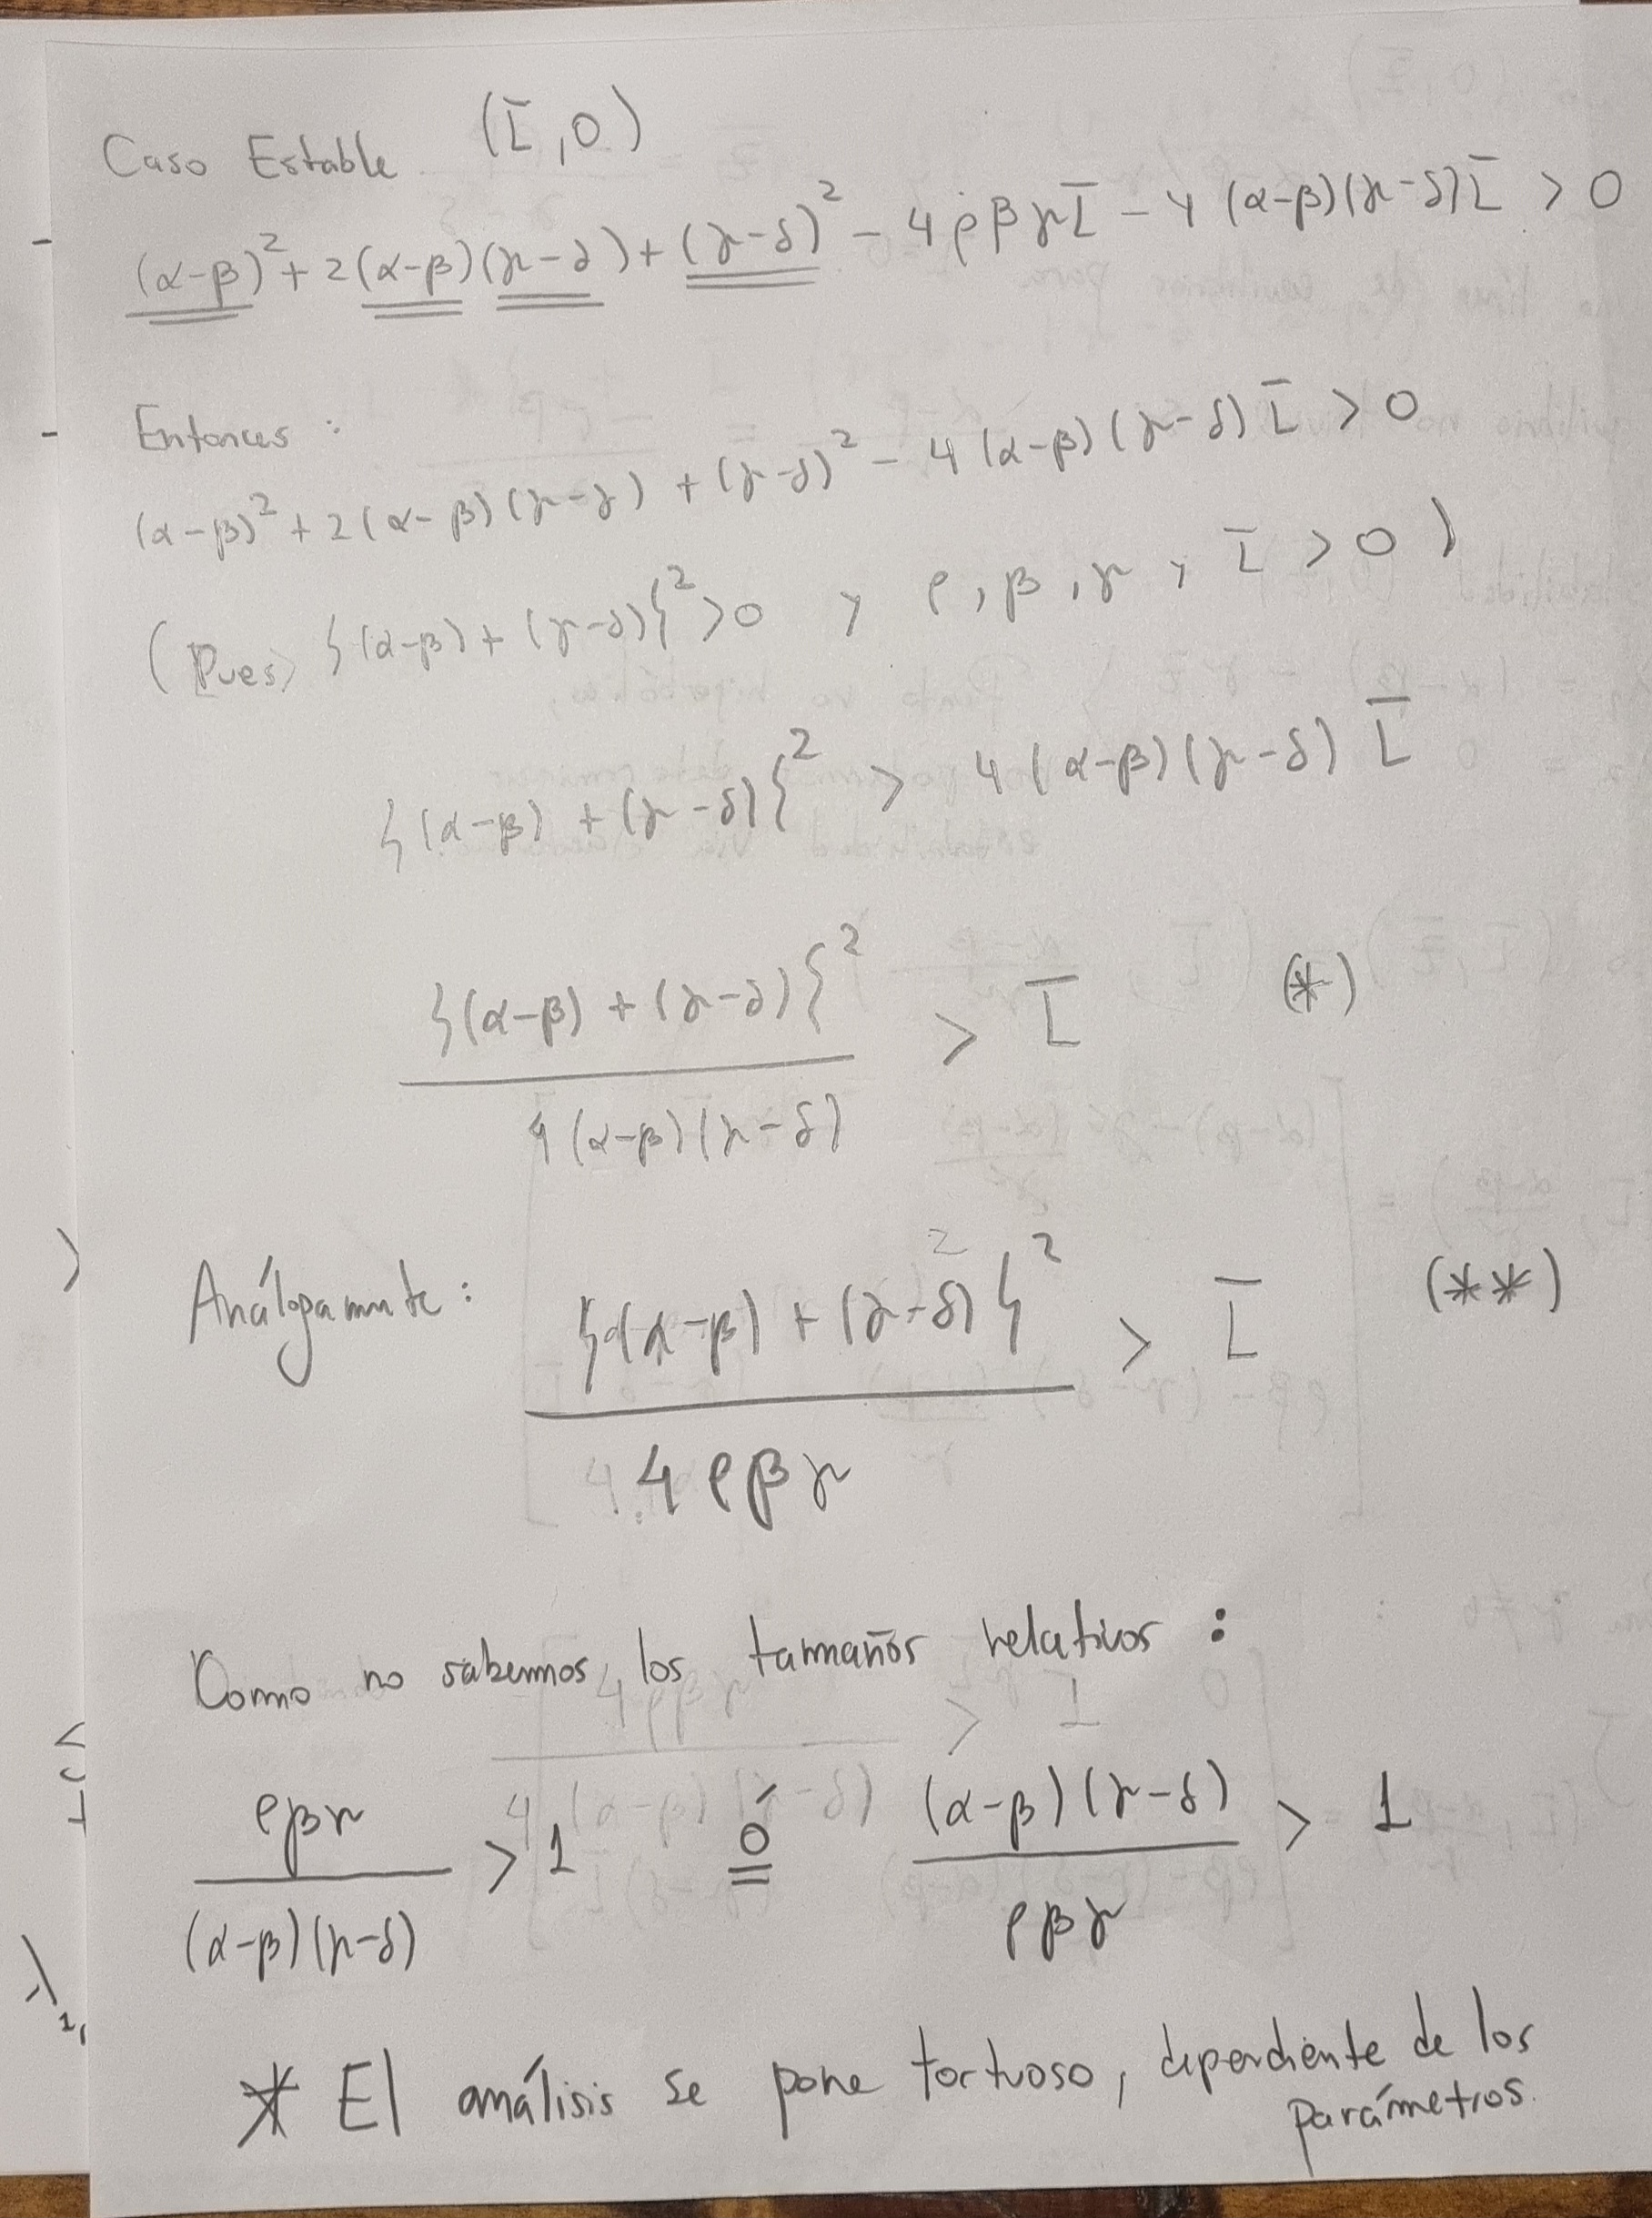 Caso Estable (L̄, 0)
(α-β)² + 2(α-β)(γ-δ) + (γ-δ)² - 4ρβγL̄ - 4(α-β)(γ-δ)L̄ > 0
Entonces :
(α-β)² + 2(α-β)(γ-γ) + (γ-δ)² - 4(α-β)(γ-δ)L̄ > 0
(Pues, {(α-β) + (γ-δ)}² > 0 y ρ, β, γ, L̄ > 0)
{(α-β) + (γ-δ)}² > 4(α-β)(γ-δ) L̄
{(α-β) + (γ-δ)}² / 4(α-β)(γ-δ) > L̄ (*)
Análogamente: {(α-β) + (γ-δ)}² / 4ρβγ > L̄ (**)
Como no sabemos los tamaños relativos :
ρβγ / (α-β)(γ-δ) > 1 ó (α-β)(γ-δ) / ρβγ > 1
* El análisis se pone tortuoso, dependiente de los
parámetros.